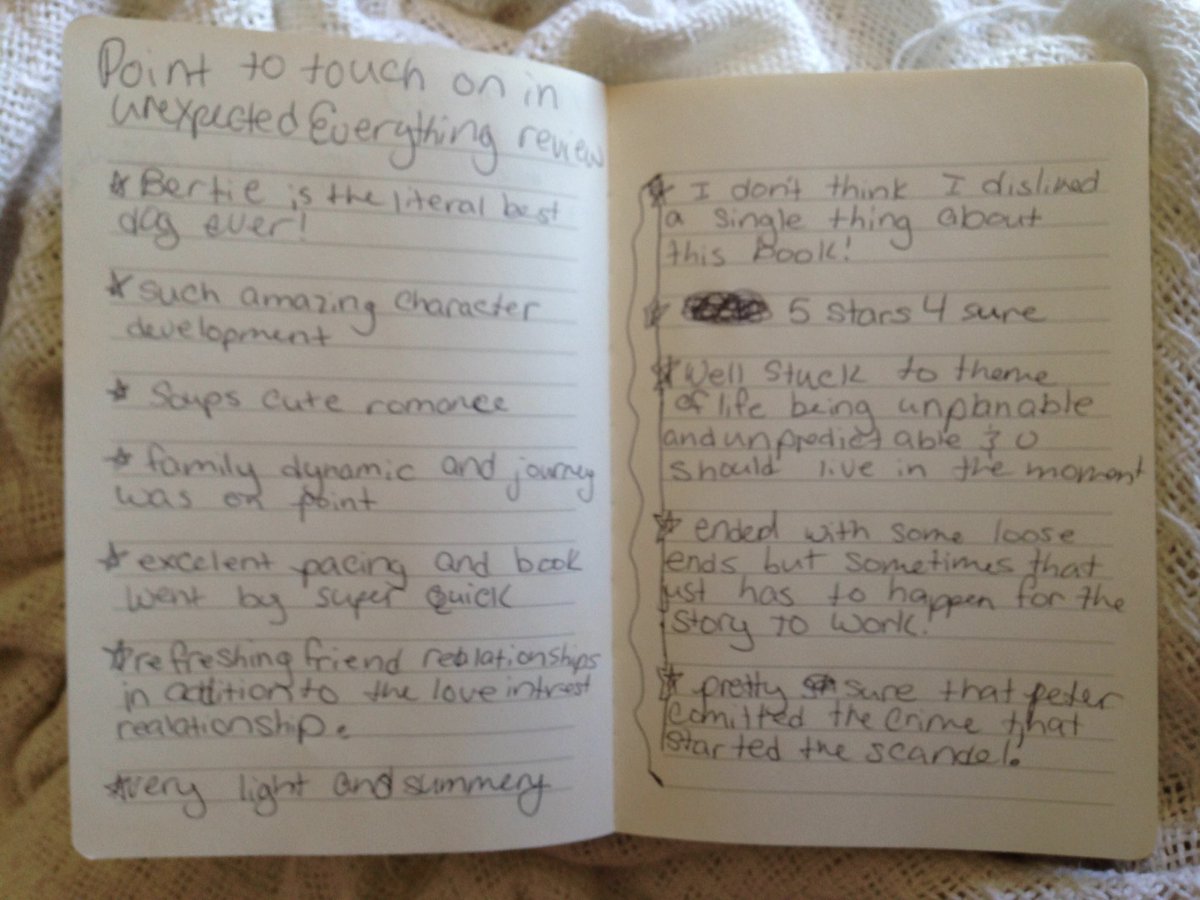 Point to touch on in
unexpected Everything review
* Bertie is the literal best
dog ever!
* such amazing character
development
* Soups cute romance
* family dynamic and journy
was on point
* excelent pacing and book
went by super quick
* refreshing friend reblationships
in addition to the love intrest
realationship.
* very light and summery
* I don't think I disliked
a single thing about
this Book!
* 5 stars 4 sure
* Well stuck to theme
of life being unplanable
and unpredictable & U
should live in the moment
* ended with some loose
ends but sometimes that
just has to happen for the
story to work!
* pretty sure that peter
comitted the crime that
started the scandel!